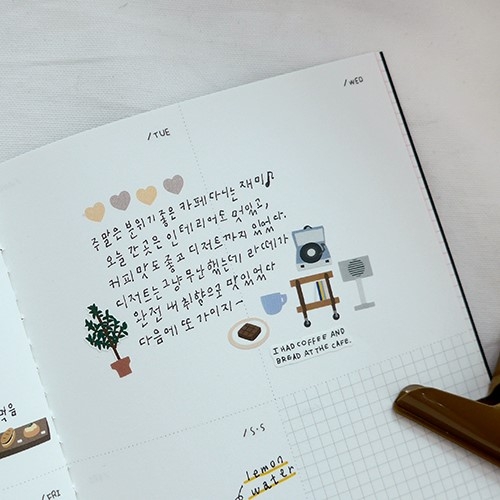 /TUE
/WED
주말은 분위기 좋은 카페 다니는 재미♪
오늘 간 곳은 인테리어도 멋있고,
커피 맛도 좋고 디저트까지 있었다.
디저트는 그냥 무난했는데 라떼가
완전 내 취향으로 맛있었다
다음에 또 가야지~
I HAD COFFEE AND
BREAD AT THE CAFE.
먹음
/FRI
/S·S
lemon
water